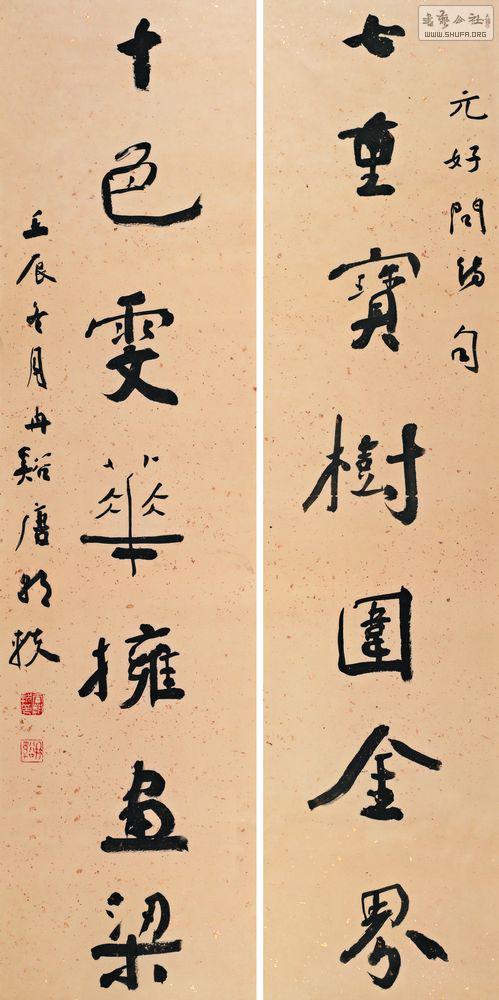 書藝公社
WWW.SHUFA.ORG
元好問詩句
七重寶樹圍金界
十色雯華擁畫梁
壬辰冬月冉谿唐朝軼